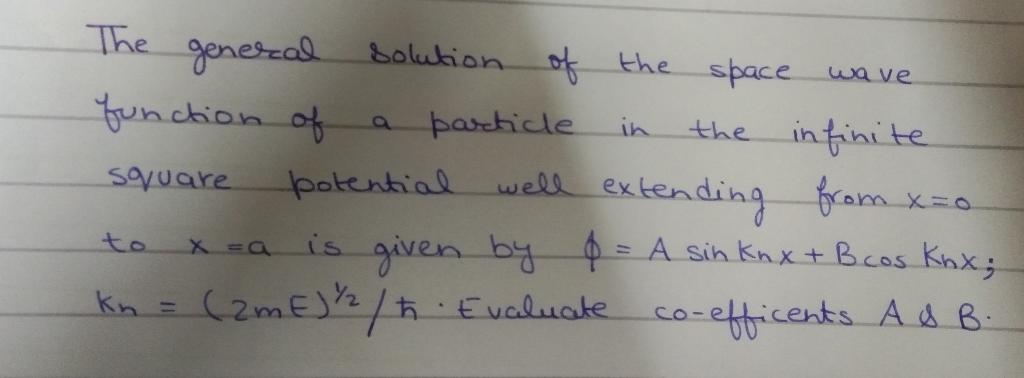 The general solution of the space wave
function of a particle in the infinite
square potential well extending from x=0
to x=a is given by ϕ = A sin Knx + B cos Knx;
Kn = (2mE)^1/2/ħ. Evaluate co-efficents A & B.